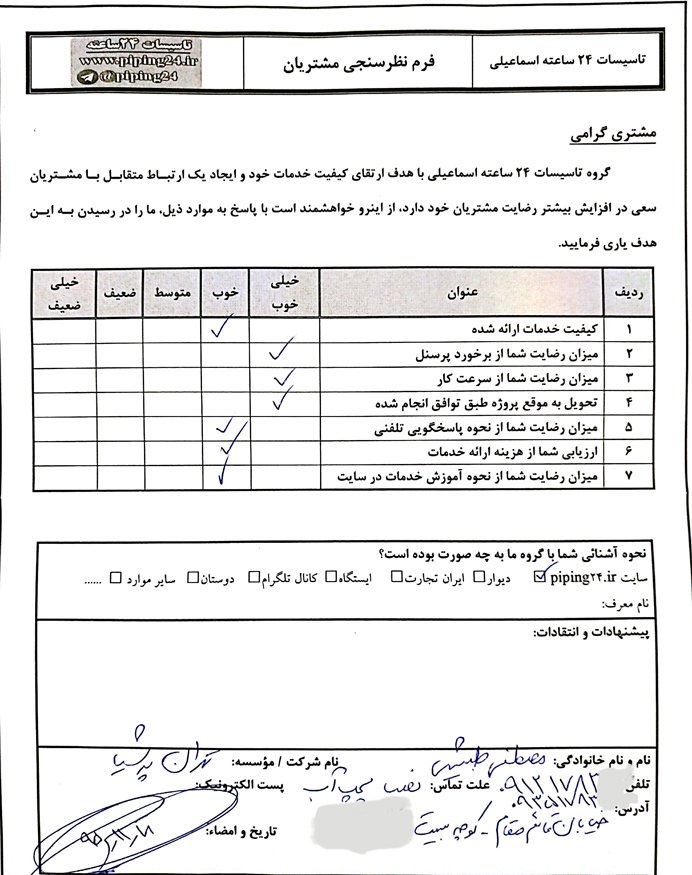 تاسیسات ۲۴ ساعته اسماعیلی
فرم نظرسنجی مشتریان
تاسیسات ۲۴ساعته
www.piping24.ir
@piping24
مشتری گرامی
گروه تاسیسات ۲۴ ساعته اسماعیلی با هدف ارتقای کیفیت خدمات خود و ایجاد یک ارتباط متقابل با مشتریان
سعی در افزایش بیشتر رضایت مشتریان خود دارد، از اینرو خواهشمند است با پاسخ به موارد ذیل، ما را در رسیدن به این
هدف یاری فرمایید.
ردیف عنوان خیلی خوب خوب متوسط ضعیف خیلی ضعیف
۱ کیفیت خدمات ارائه شده ✓
۲ میزان رضایت شما از برخورد پرسنل ✓
۳ میزان رضایت شما از سرعت کار ✓
۴ تحویل به موقع پروژه طبق توافق انجام شده ✓
۵ میزان رضایت شما از نحوه پاسخگویی تلفنی ✓
۶ ارزیابی شما از هزینه ارائه خدمات ✓
۷ میزان رضایت شما از نحوه آموزش خدمات در سایت ✓
نحوه آشنائی شما با گروه ما به چه صورت بوده است؟
سایت piping۲۴.ir ☑ دیوار □ ایران تجارت □ ایستگاه □ کانال تلگرام □ دوستان □ سایر موارد □ ......
نام معرف:
پیشنهادات و انتقادات:
نام و نام خانوادگی: مصطفی نام شرکت / مؤسسه: تهران پرشیا
تلفن ۰۹۱۲۱۷۸۳ علت تماس: نصب پمپ آب پست الکترونیک:
۰۹۳۵۱۷۸۳
آدرس: خیابان قائم مقام - کوچه بیست
تاریخ و امضاء: ۹۵/۱۱/۷